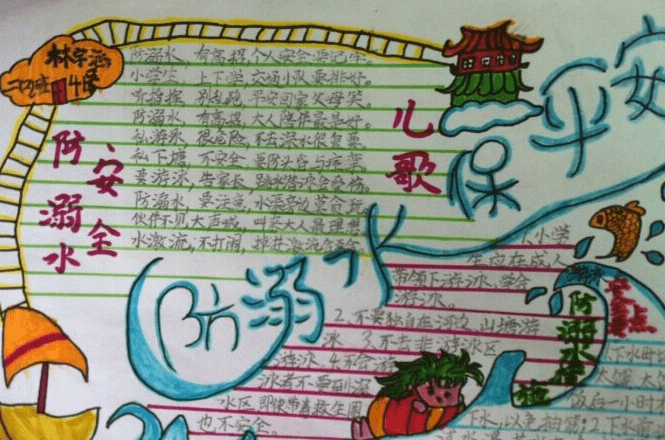 林字涵
二(2)班 4号
防溺水
安全
儿歌
防溺水,有高招,个人安全要记牢。
小学生,上下学,交通小队要排好。
听指挥,别乱跑,平安回家父母笑。
防溺水,有高招,大人陪伴最是好。
私游泳,很危险,不去深水很重要。
私下塘,不安全,要防头晕与痉挛。
要游泳,告家长,跳水潜泳会受伤。
防溺水,要注意,水深旁边莫合玩。
伙伴不见大声喊,叫来大人最理想
水激流,不打闹,掉井激流
防溺水 保平安
1.小学
生应在成人
带领下游泳,学会
游泳。
2.不要独自在河边、山塘游
泳 3.不去非游泳区
游泳 4.不会游
泳者不要到深
水区 即使带着救生圈
也不安全。
防溺水措施
安全
点
下水时
太饿、太
饭后一小时
下水,以免抽筋;2.下水前